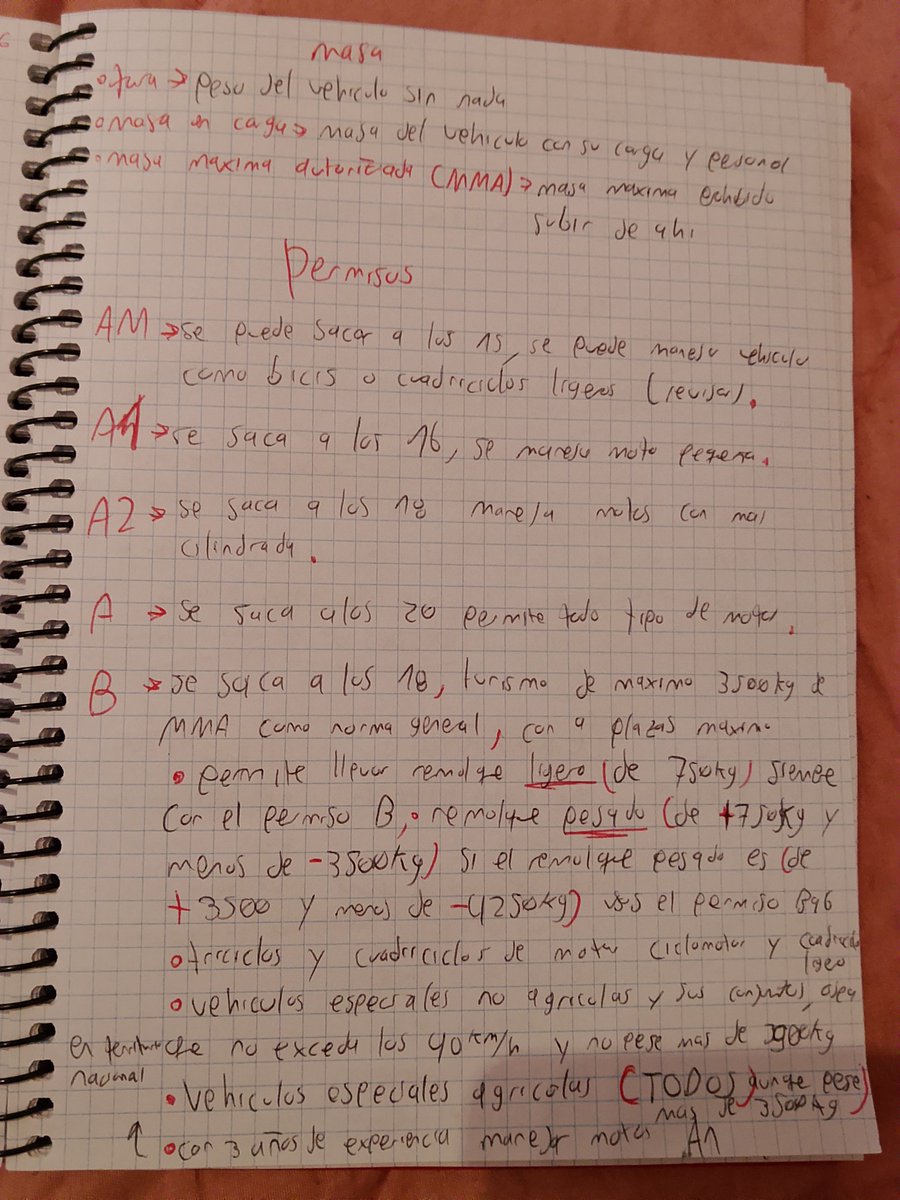 masa
• tara → peso del vehiculo sin nada
• masa en carga → masa del vehiculo con su carga y personal
• masa maxima autorizada (MMA) → masa maxima
subir de ahi
Permisos
AM → se puede sacar a los 15, se puede maneja vehiculo
como bicis o cuadriciclos ligeros (revisar).
A1 → se saca a los 16, se maneja moto peqena.
A2 → se saca a los 18 maneja motos con mas
cilindrada.
A → se saca a los 20 permite todo tipo de motos.
B → se saca a los 18, turismo de maximo 3500kg de
MMA como norma general, con 9 plazas maximo
• permite llevar remolqe ligero (de 750kg) siempre
con el permiso B, • remolque pesado (de +750kg y
menos de -3500kg) si el remolque pesado es (de
+3500 y menos de -4250kg) el permiso B96
• triciclos y cuadriciclos de motor ciclomotor y cuadriciclo
ligero
• vehiculos especiales no agricolas y sus conjuntos, osea
en territorio qe no exceda los 40km/h y no pese mas de 3500kg
nacional
• vehiculos especiales agricolas (TODOS) aunqe pese
mas de 3500kg
↑ • con 3 años de experiencia manejar motos A1